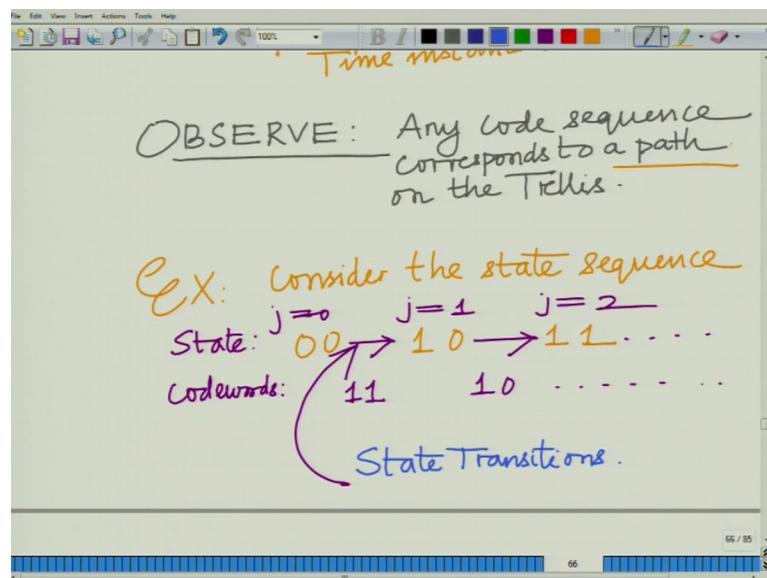 File Edit View Insert Actions Tools Help
100%
B I
Time instant
OBSERVE: Any code sequence
corresponds to a path
on the Trellis.
Ex: Consider the state sequence
j=0 j=1 j=2
State: 00 → 10 → 11 . . . .
Codewords: 11 10 . . . . . . .
State Transitions.
66 / 85
66